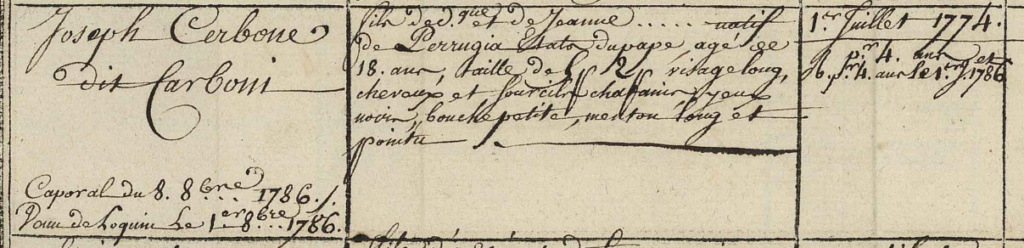 Joseph Cerbone
dit Carboni
Caporal du 8. 8bre 1786./.
Le 1er 8bre 1786.
fils de d.que et de Jeanne ..... natif
de Perrugia Etats du pape, agé de
18. ans, taille de visage long,
cheveux et sourcils chatains yeux
noirs, bouche petite, menton long et
pointu
1er Juillet 1774.
pr 4. ans et
pr 4. ans le 1er 1786